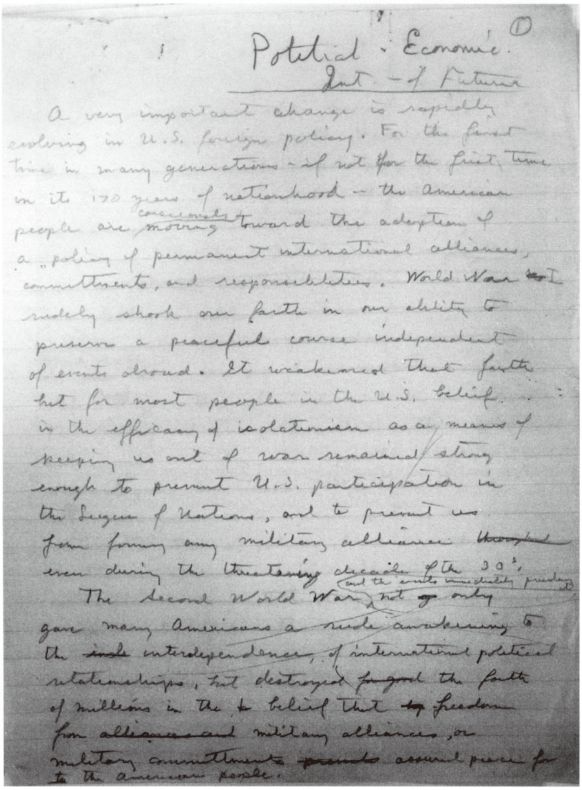 ①
Political - Economic.
Int. - of Future
A very important change is rapidly
evolving in U.S. foreign policy. For the first
time in many generations - if not for the first time
in its 170 years of nationhood - the American
consciously
people are moving toward the adoption of
a policy of permanent international alliances,
committments, and responsibilities. World War I
rudely shook our faith in our ability to
preserve a peaceful course independent
of events abroad. It weakened that faith
but for most people in the U.S. belief
in the efficacy of isolationism as a means of
keeping us out of war remained strong
enough to prevent U.S. participation in
the League of Nations, and to prevent us
from forming any military alliance
even during the threatening decade of the 30s.
and the events immediately preceding it
The Second World War, not only
gave many Americans a rude awakening to
the interdependence, of international political
relationships, but destroyed the faith
of millions in the belief that freedom
from alliances and military alliances, or
military committments assured peace for
to the American people.